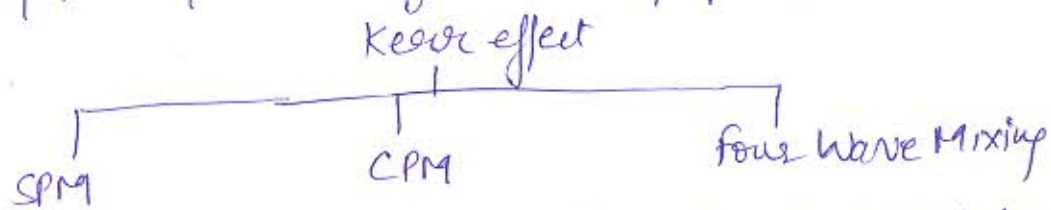 Kerr effect
SPM CPM Four Wave Mixing